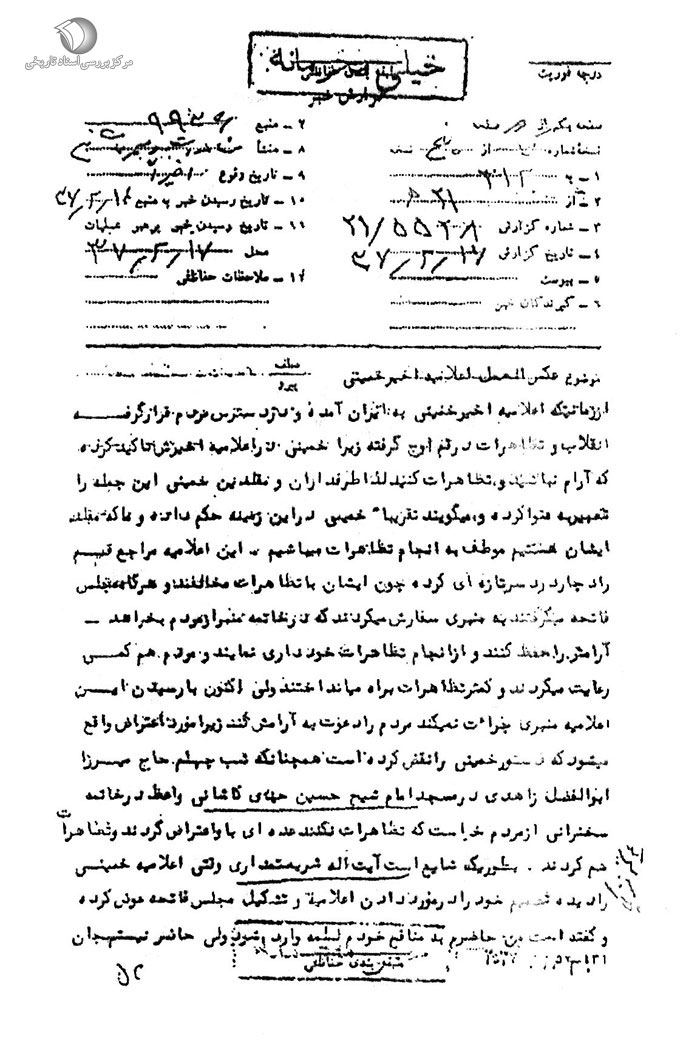 مرکز بررسی اسناد تاریخی
خیلی محرمانه
گزارش خبر
درجه فوریت
صفحه یکم از صفحه
نسخه شماره از نسخه
۱ - به ۳۱۲
۲ - از ۲۱ ه
۳ - شماره گزارش ۲۱/۵۵۲۰۸
۴ - تاریخ گزارش ۳۷/۲/۱۷
۵ - پیوست
۶ - گیرندگان خبر
۷ - منبع
۸ - منشأ
۹ - تاریخ وقوع اخیراً
۱۰ - تاریخ رسیدن خبر به منبع
۱۱ - تاریخ رسیدن خبر به رهبر عملیات
محل ۳۷/۲/۱۷
۱۲ - ملاحظات حفاظتی
موضوع عکس العمل اعلامیه اخیر خمینی
عطف
پیرو
از زمانیکه اعلامیه اخیر خمینی به تهران آمده و در دسترس مردم قرار گرفته
انقلاب و تظاهرات در قم اوج گرفته زیرا خمینی در اعلامیه اخیرش تاکید کرده
که آرام نباشید و تظاهرات کنید لذا طرفداران و مقلدین خمینی این جمله را
تعبیر به فتوا کرده و میگویند تقریبا" خمینی در این زمینه حکم داده و ما که مقلد
ایشان هستیم موظف به انجام تظاهرات میباشیم . این اعلامیه مراجع قم
را دچار دردسر تازه ای کرده چون ایشان با تظاهرات مخالفند و هرگاه مجلس
فاتحه میگرفتند به منبری سفارش میکردند که در خاتمه منبر از مردم بخواهد -
آرامش را حفظ کنند و از انجام تظاهرات خودداری نمایند و مردم هم کمی
رعایت میکردند و کمتر تظاهرات براه میانداختند ولی اکنون با رسیدن این
اعلامیه منبری جرات نمیکند مردم را دعوت به آرامش کند زیرا مورد اعتراض واقع
میشود که دستور خمینی را نقض کرده است همچنانکه شب چهلم حاج میرزا
ابوالفضل زاهدی در مسجد امام شیخ حسین مهدی کاشانی واعظ در خاتمه
سخنرانی از مردم خواست که تظاهرات نکنند عده ای با و اعتراض کردند و تظاهرات
هم کردند . بطوریکه شایع است آیت اله شریعتمداری وقتی اعلامیه خمینی
را دیده تصمیم خود را در مورد دادن اعلامیه و تشکیل مجلس فاتحه عوض کرده
و گفته است من حاضرم به منافع خودم لطمه وارد بشود ولی حاضر نیستم جان
طبقه بندی حفاظتی